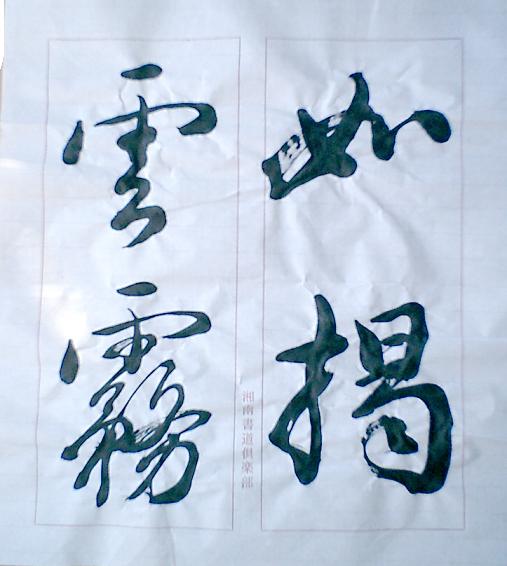 如揭
雲霧
湘南書道倶楽部